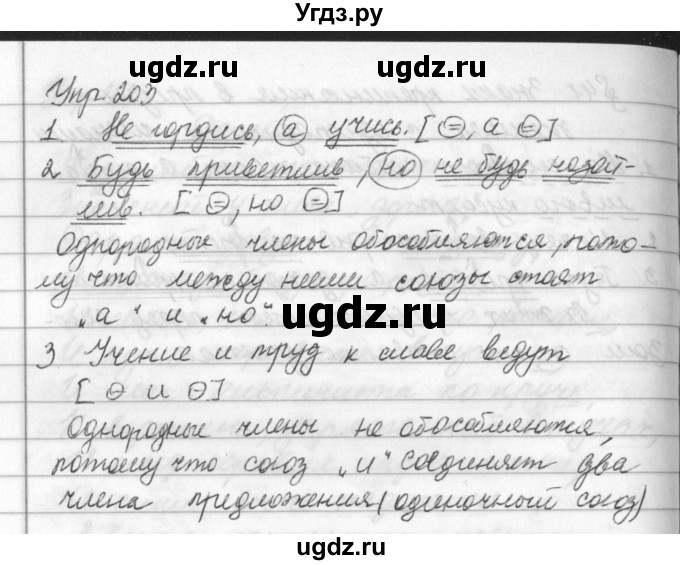 Угдз.ру
ugdz.ru
ugdz.ru
Упр 203
1 Не гордись, а учись. [⊖, а ⊖]
2 Будь приветлив, но не будь назой-
лив. [⊖, но ⊖]
Однородные члены обособляются, пото-
му что между ними союзы стоят
„а“ и „но“.
ugdz.ru
3 Учение и труд к славе ведут
[⊖ и ⊖]
Однородные члены не обособляются,
потому что союз „и“ соединяет два
члена предложения (одиночный союз)
ugdz.ru
ugdz.ru